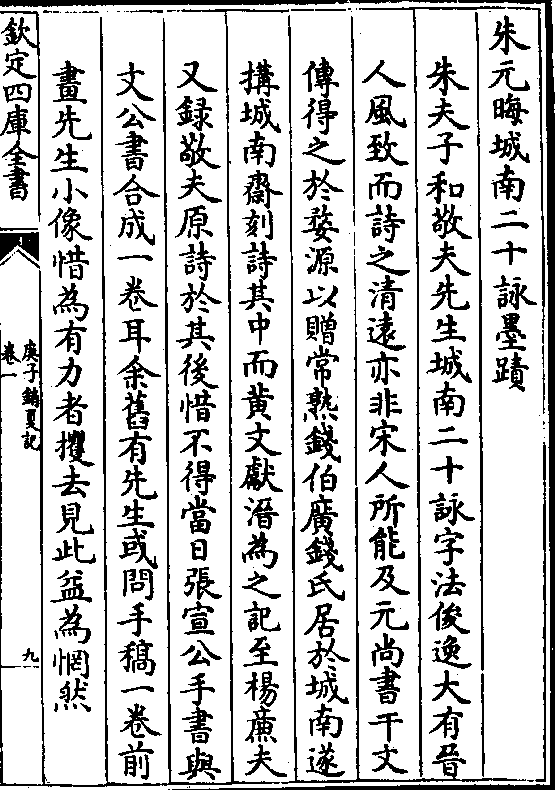 朱元晦城南二十詠墨蹟
朱夫子和敬夫先生城南二十詠字法俊逸大有晉
人風致而詩之清遠亦非宋人所能及元尚書干文
傳得之於婺源以贈常熟錢伯廣錢氏居於城南遂
搆城南齋刻詩其中而黄文獻溍為之記至楊亷夫
又録敬夫原詩於其後惜不得當日張宣公手書與
文公書合成一卷耳余舊有先生或問手稿一卷前
畫先生小像惜為有力者攫去見此益為惘然
欽定四庫全書
庚子銷夏記
卷一
九